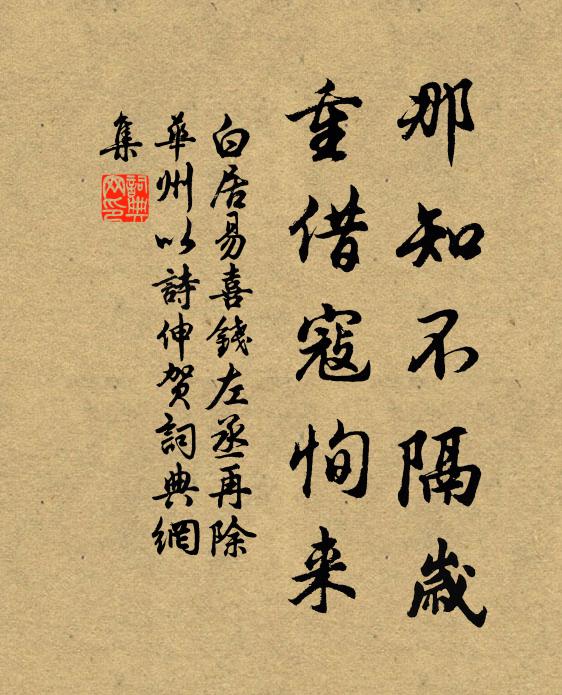 那知不隔歲
重借寇恂来
白居易喜錢左丞再除
華州以詩伸贺詞典網
集
詞典
网印